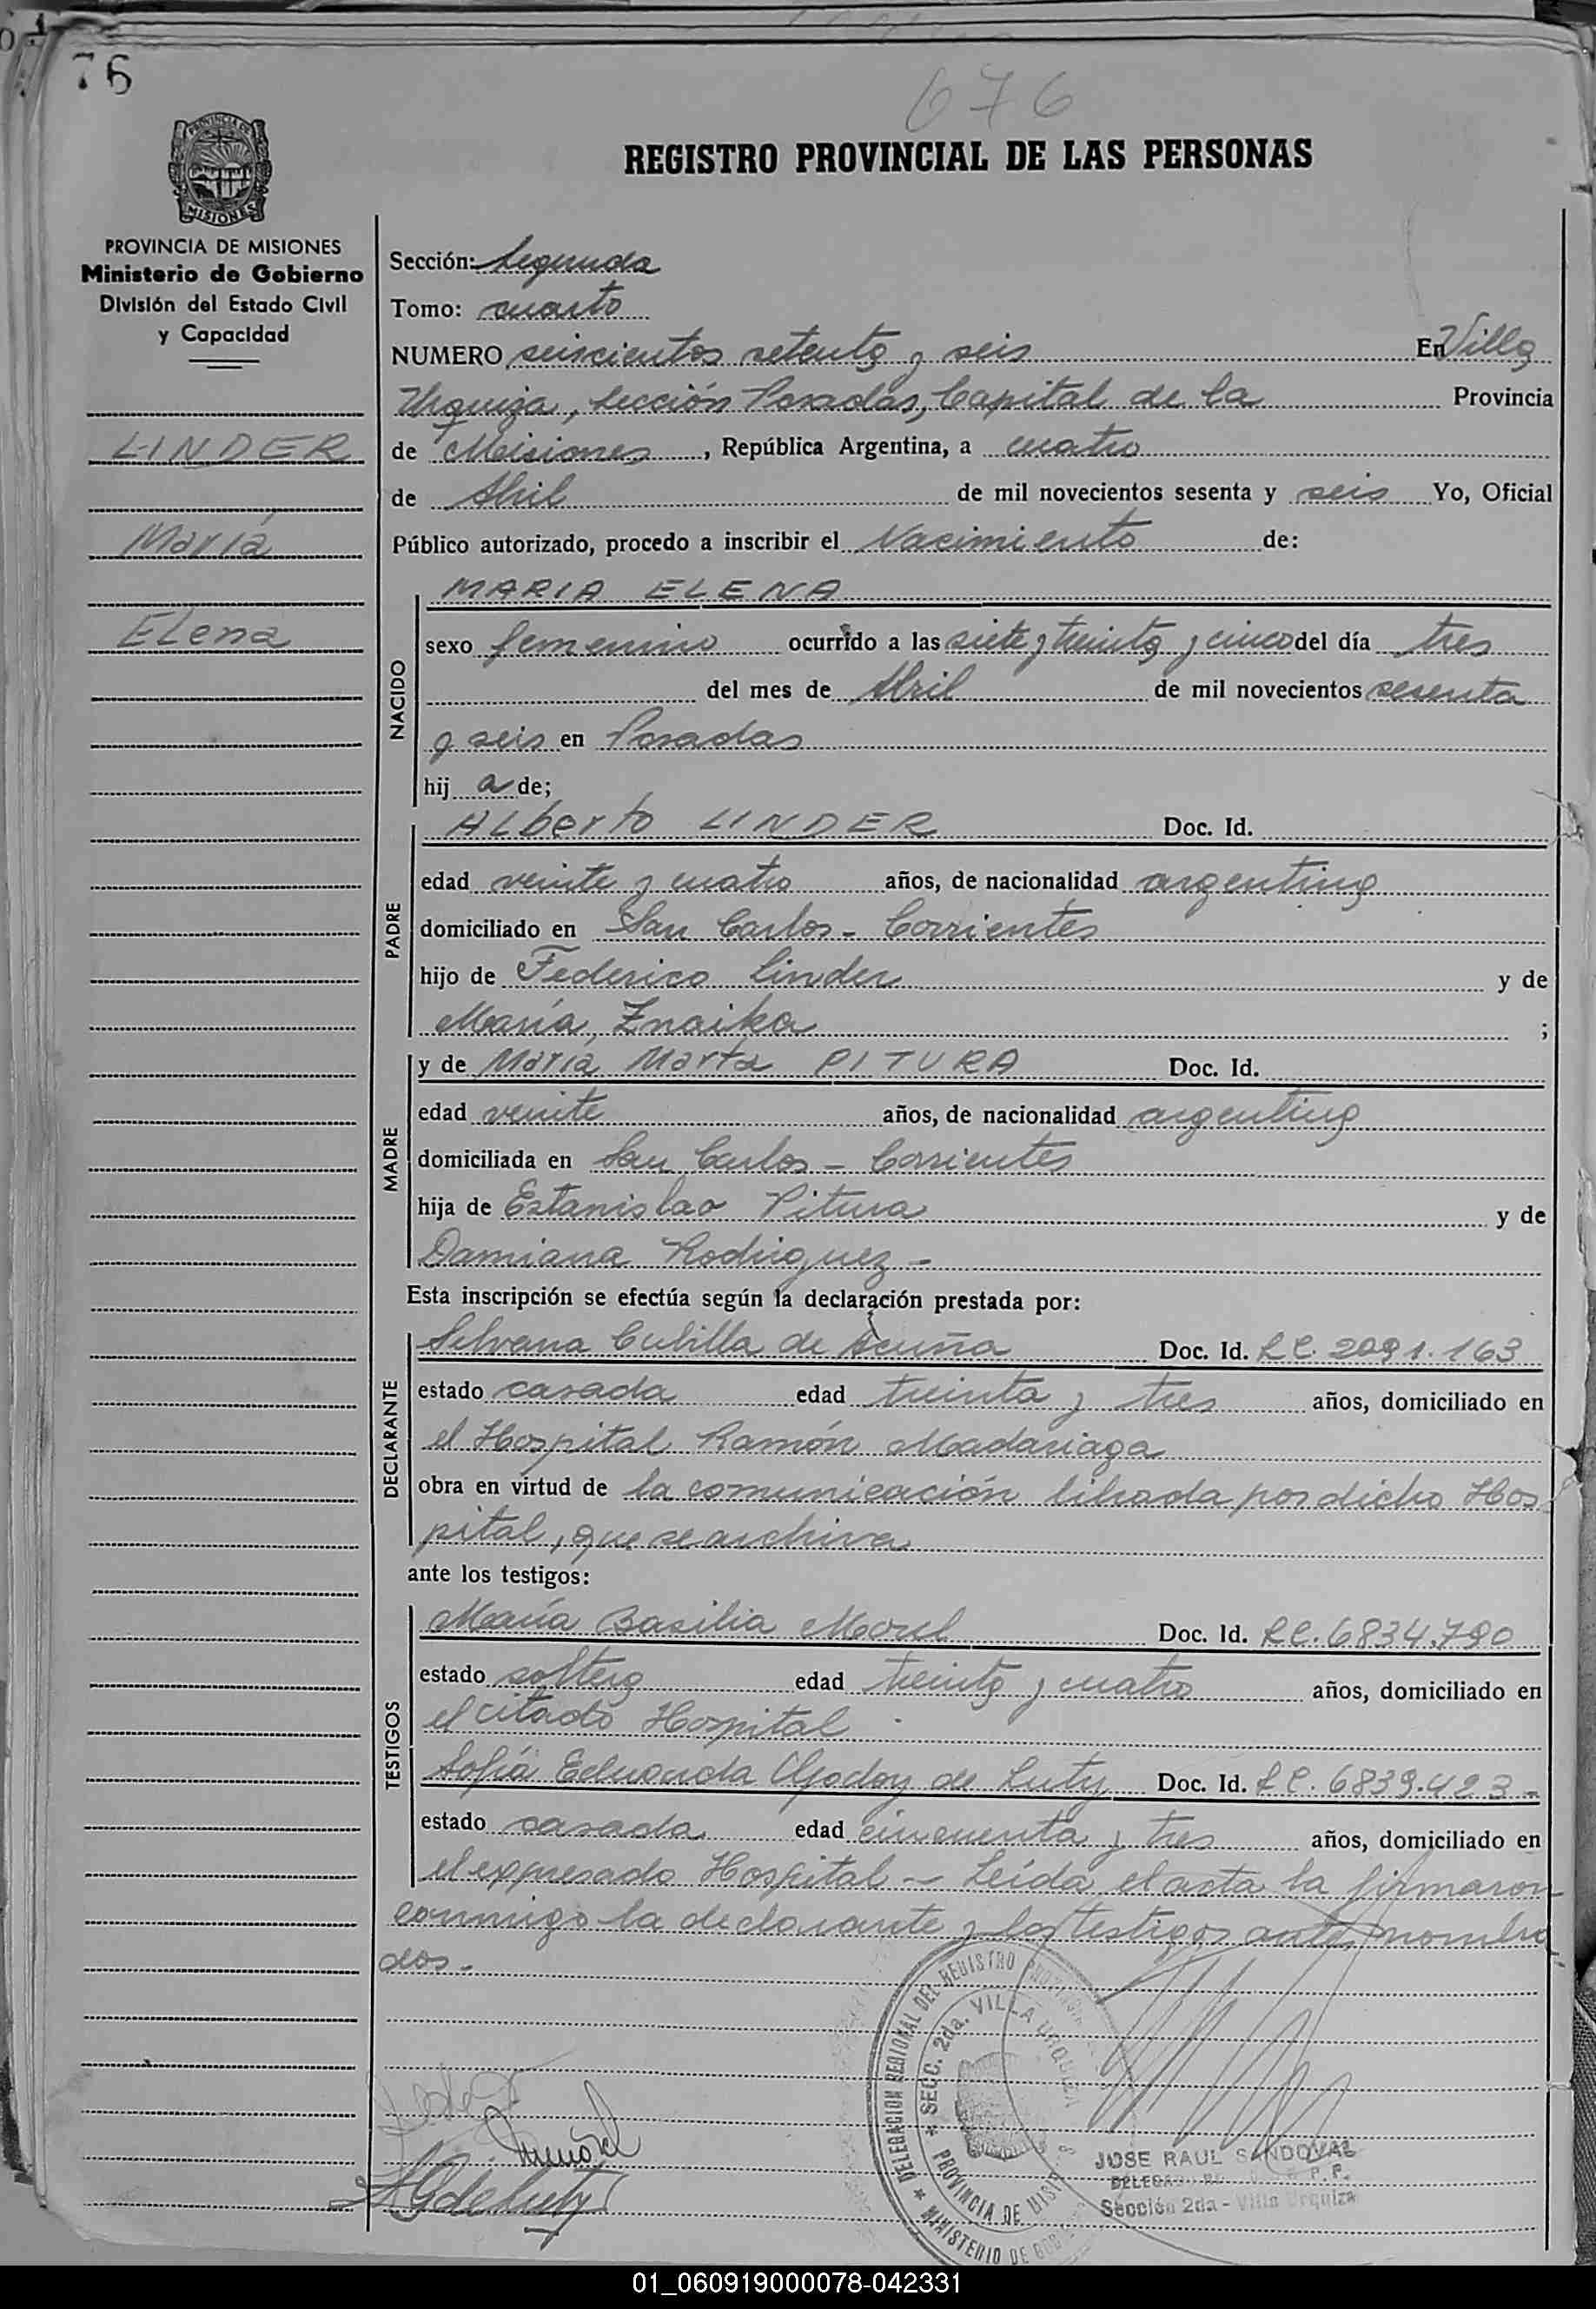 76
676
REGISTRO PROVINCIAL DE LAS PERSONAS
PROVINCIA DE
MISIONES
PROVINCIA DE MISIONES
Ministerio de Gobierno
División del Estado Civil
y Capacidad
LINDER
María
Elena
Sección: Segunda
Tomo: cuarto
NUMERO seiscientos setenta y seis En Villa
Urquiza, Sección Posadas, Capital de la Provincia
de Misiones, República Argentina, a cuatro
de Abril de mil novecientos sesenta y seis Yo, Oficial
Público autorizado, procedo a inscribir el Nacimiento de:
NACIDO
MARIA ELENA
sexo femenino ocurrido a las siete y treinta y cinco del día tres
del mes de Abril de mil novecientos sesenta
y seis en Posadas
hij a de;
PADRE
Alberto LINDER Doc. Id.
edad veinte y cuatro años, de nacionalidad argentina
domiciliado en San Carlos - Corrientes
hijo de Federico Linder y de
María Znaika ;
MADRE
y de María Marta PITURA Doc. Id.
edad veinte años, de nacionalidad argentina
domiciliada en San Carlos - Corrientes
hija de Estanislao Pitura y de
Damiana Rodriguez -
Esta inscripción se efectúa según la declaración prestada por:
DECLARANTE
Silvana Cubilla de Acuña Doc. Id. LC. 2091.163
estado casada edad treinta y tres años, domiciliado en
el Hospital Ramón Madariaga
obra en virtud de la comunicación librada por dicho Hos
pital, que se archiva
ante los testigos:
TESTIGOS
María Basilia Morel Doc. Id. LC. 6834.790
estado soltera edad treinta y cuatro años, domiciliado en
el citado Hospital
Sofía Eduarda Godoy de Luty Doc. Id. LC. 6839.423-
estado casada edad cincuenta y tres años, domiciliado en
el expresado Hospital - Leída el acta la firmaron
conmigo la declarante y los testigos antes nombra
dos.
DELEGACION REGIONAL DEL REGISTRO
SECC. 2da. VILLA URQUIZA
PROVINCIA DE MISIONES
MINISTERIO DE
JOSE RAUL SANDOVAL
Sección 2da - Villa Urquiza
SGdeLuty
01_060919000078-042331